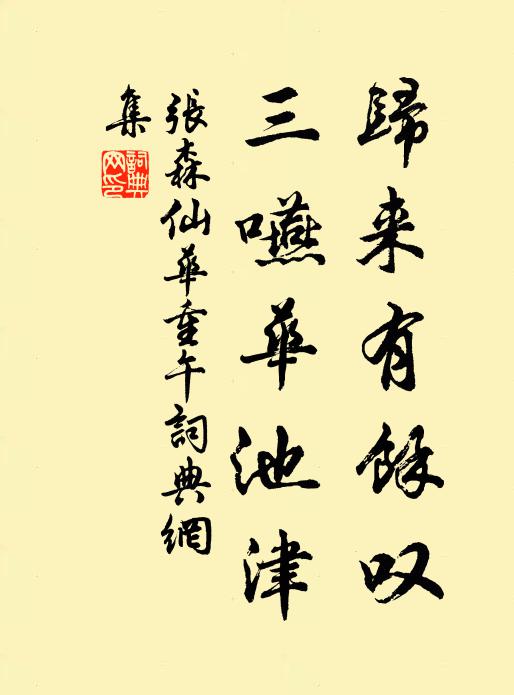 歸来有餘叹
三嚥華池津
張森仙華重午詞典網
集
詞典
网印